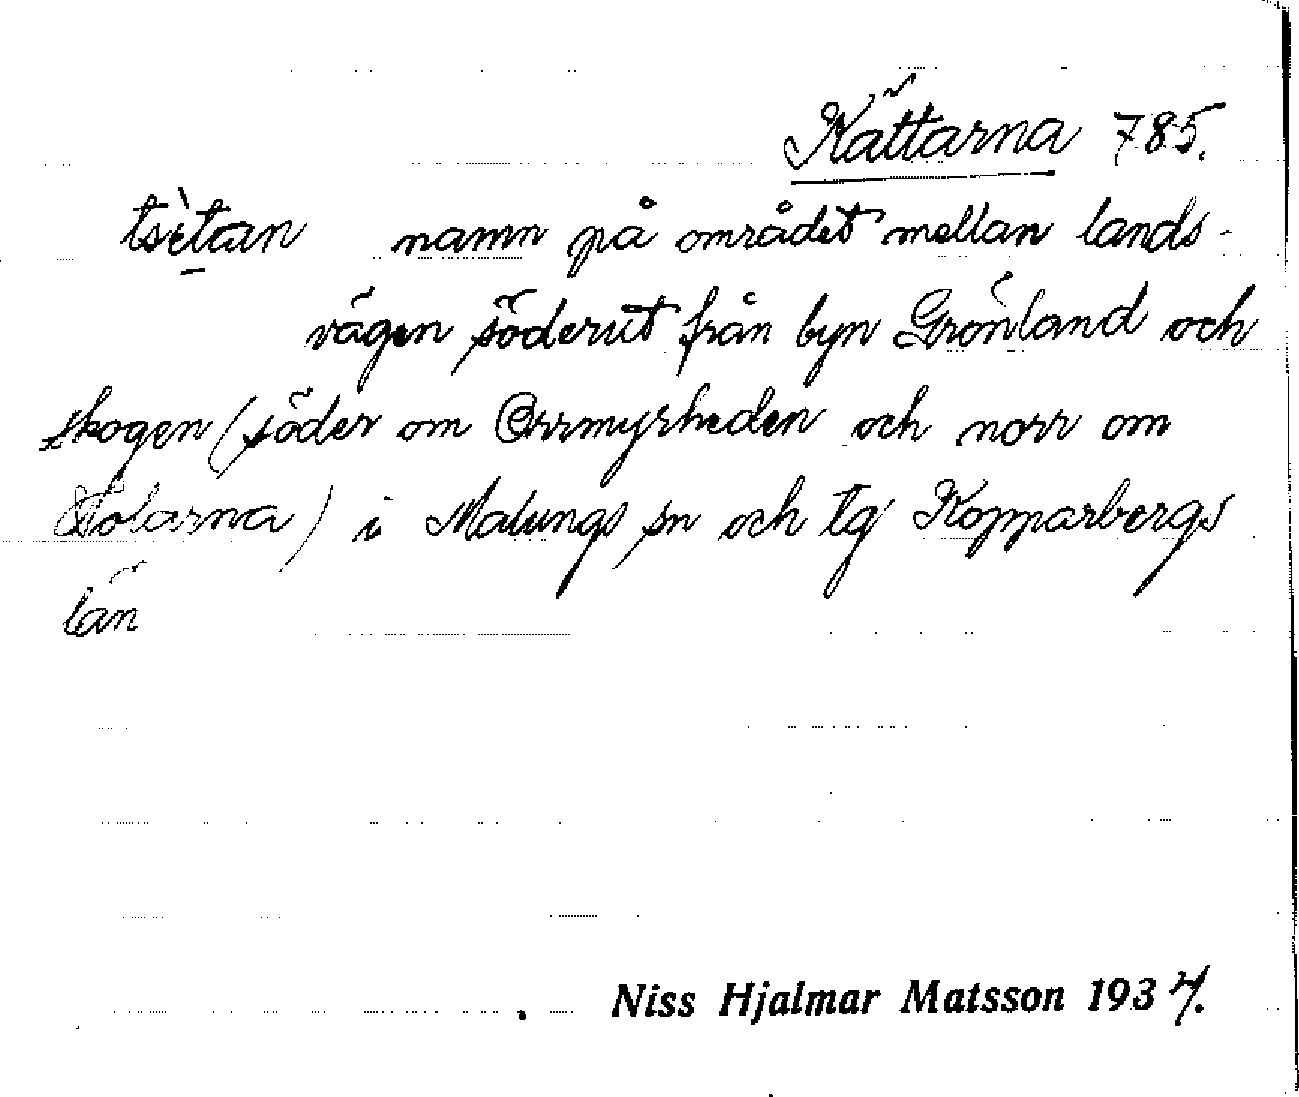 Kättarna 785.
tsè̱tan namn på området mellan lands-
vägen söderut från byn Grönland och
skogen (söder om Orrmyrheden och norr om
Tolarna) i Malungs sn och tg Kopparbergs
län
Niss Hjalmar Matsson 1937.